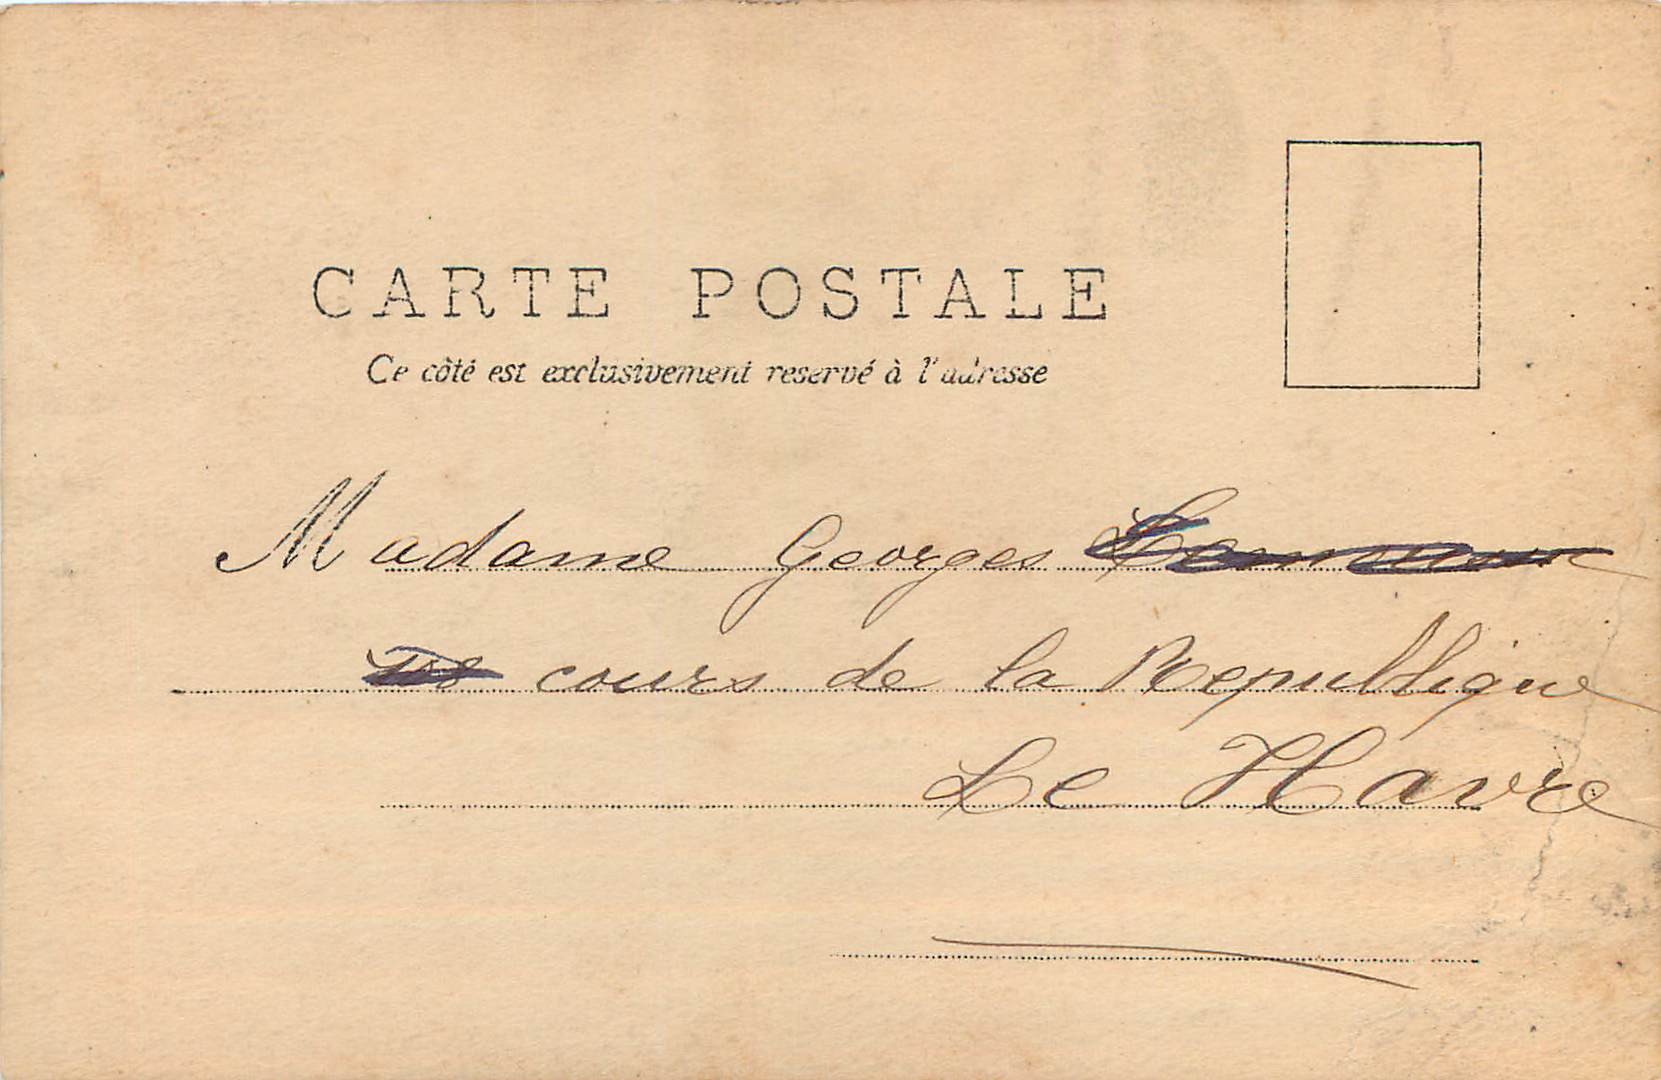 CARTE POSTALE
Ce côté est exclusivement reservé à l'adresse
Madame Georges
cours de la Republique
Le Havre